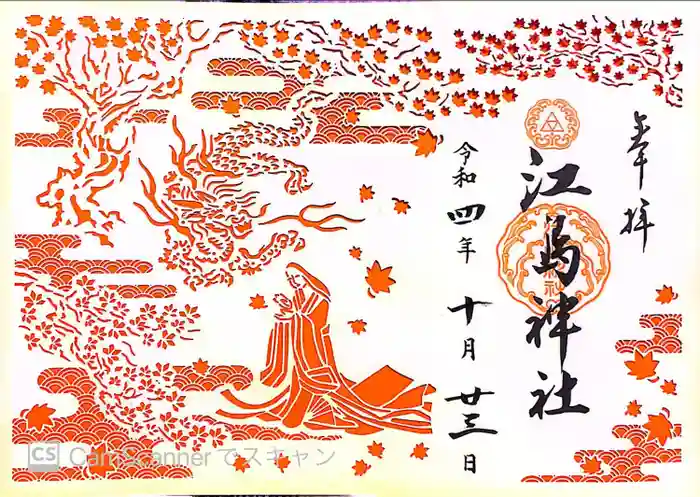 奉拝
江島神社
令和四年
十月
廿三日
CS CamScanner でスキャン